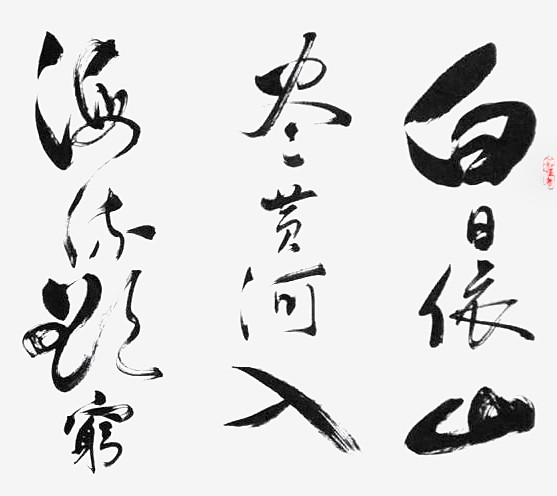 白日依山
尽黄河入
海流欲窮